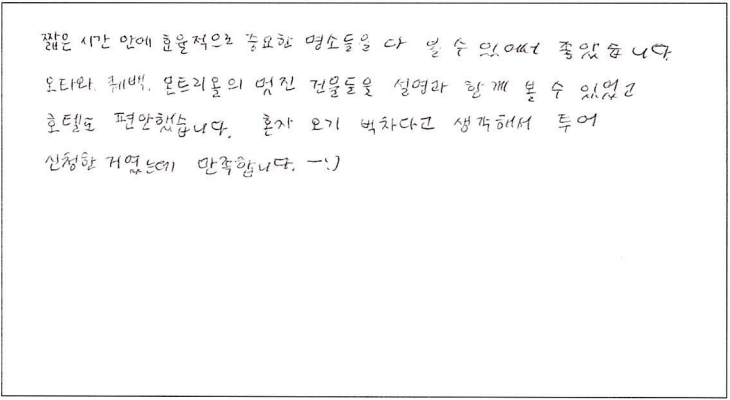 짧은 시간 안에 효율적으로 중요한 명소들을 다 볼 수 있어서 좋았습니다.
오타와, 퀘백, 몬트리올의 멋진 건물들을 설명과 함께 볼 수 있었고
호텔도 편안했습니다. 혼자 오기 벅차다고 생각해서 투어
신청한 거였는데 만족합니다. -:)